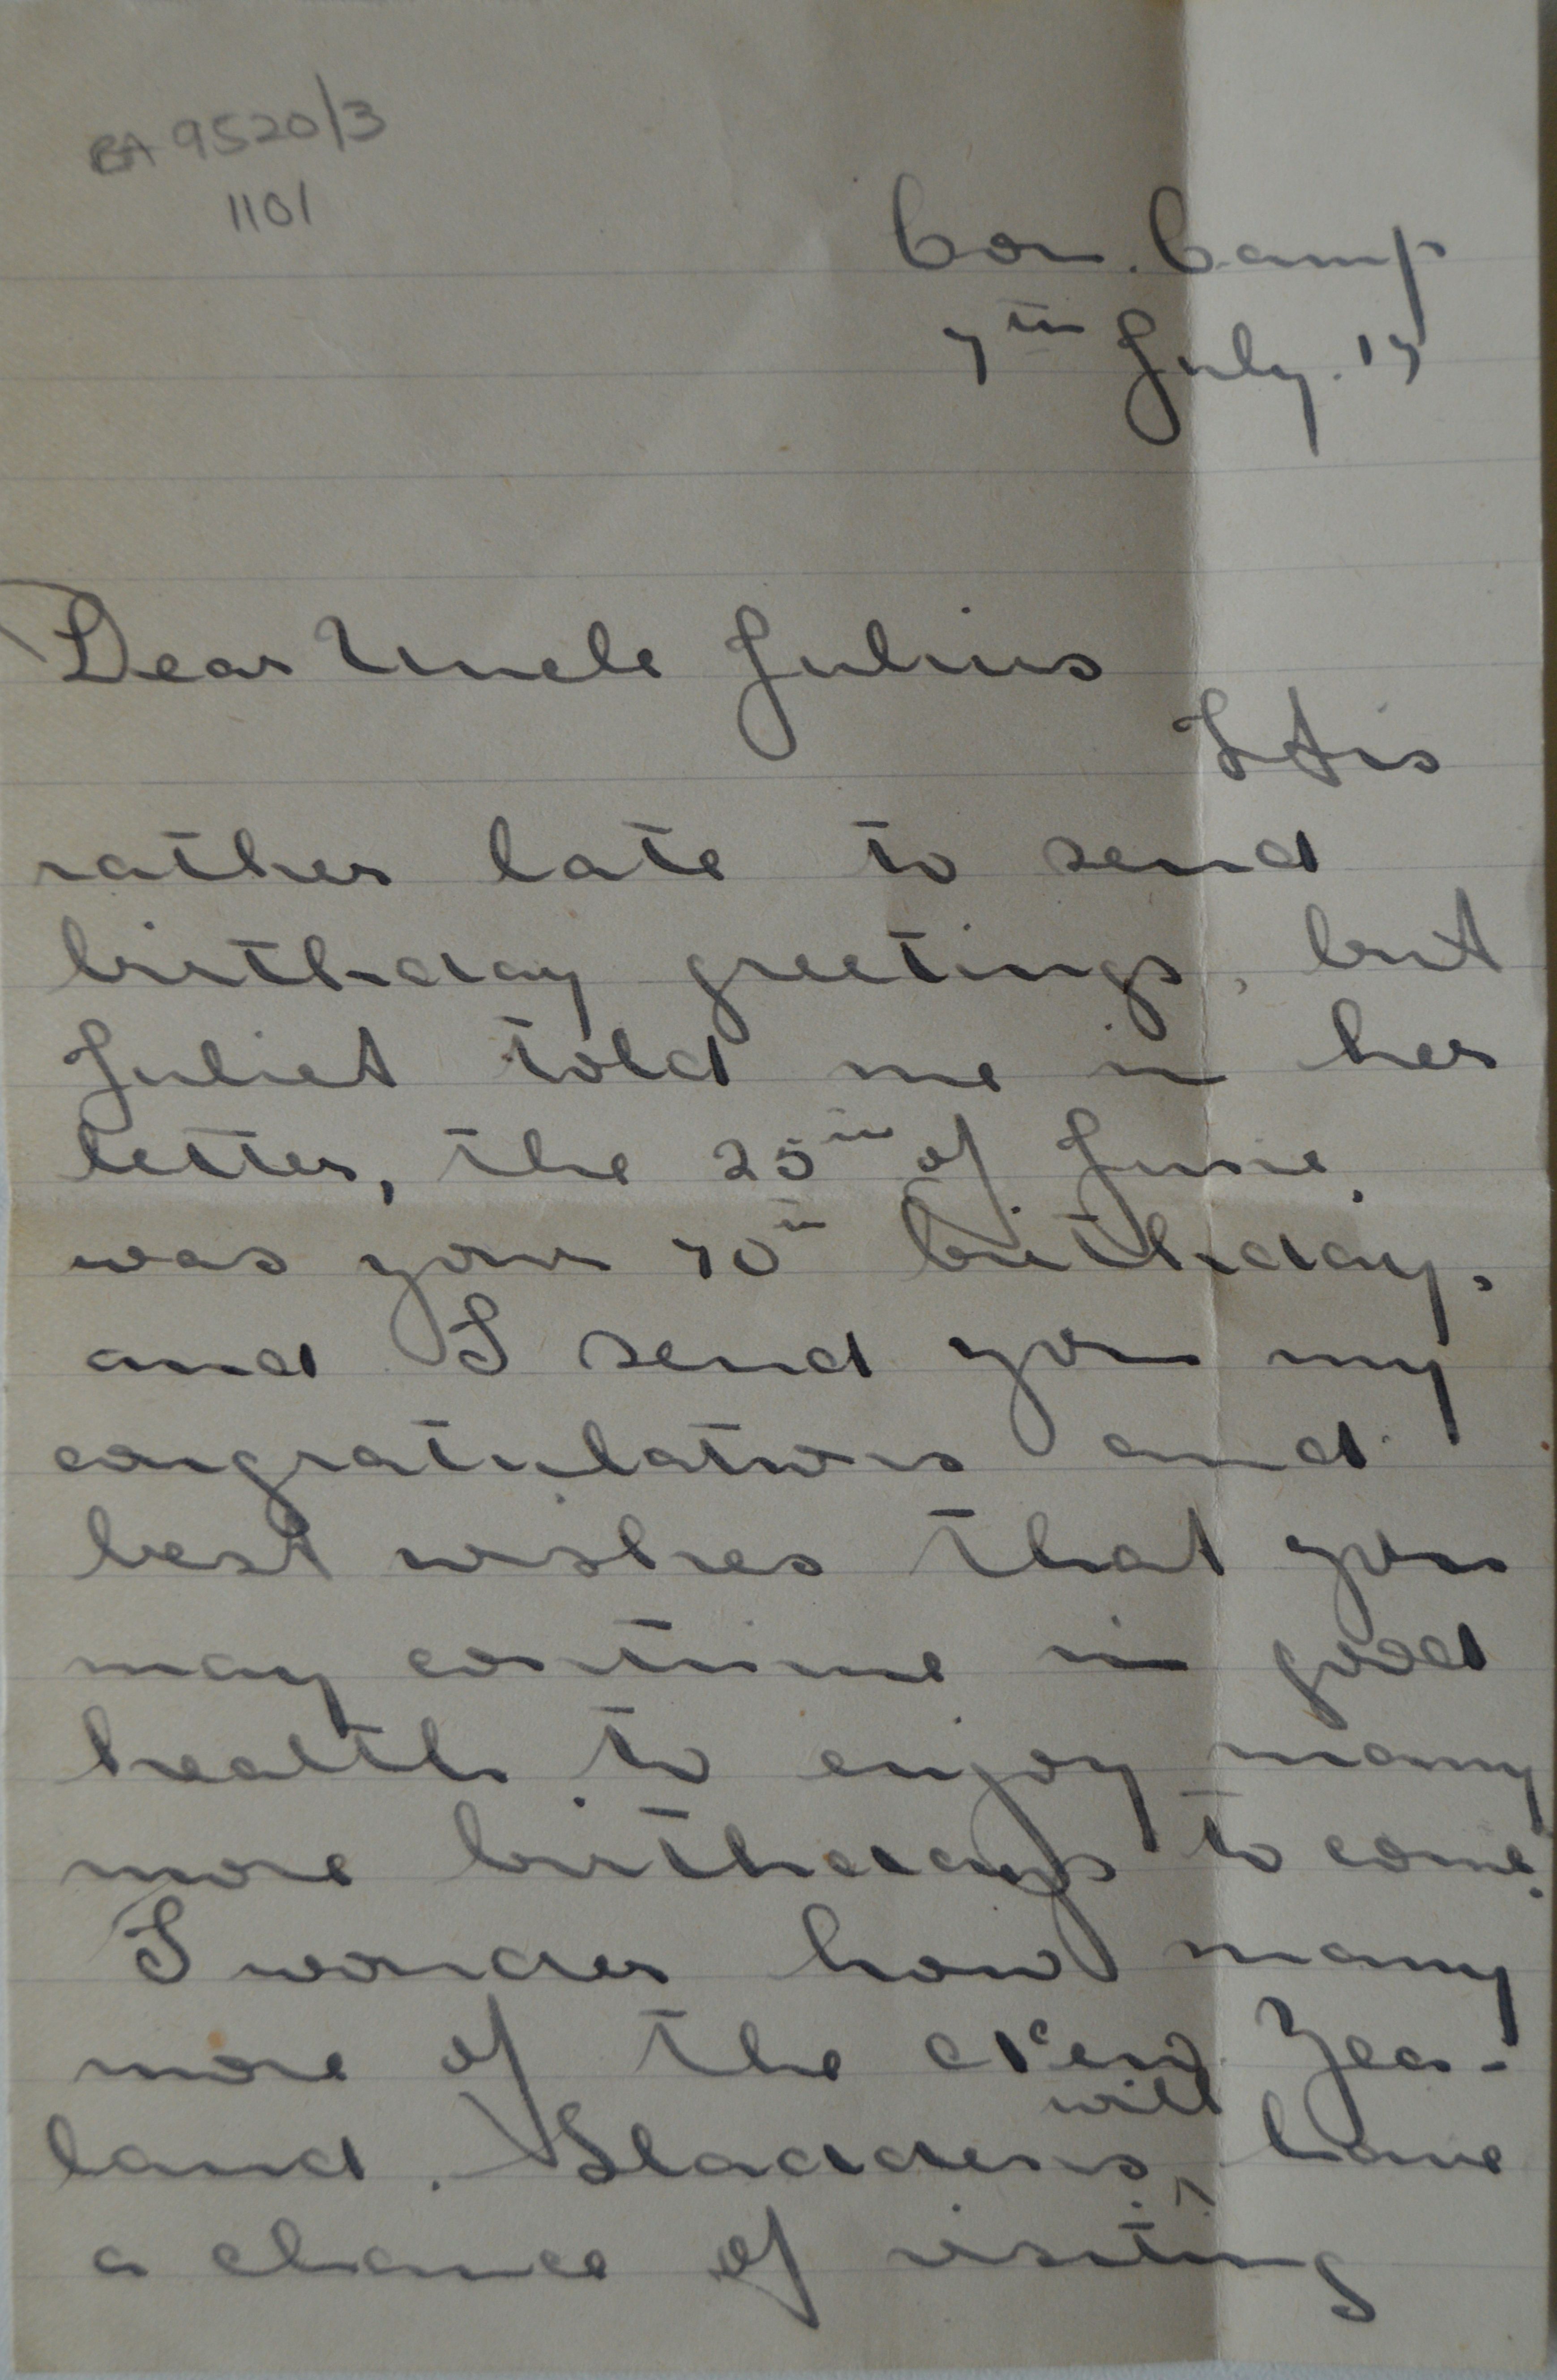 BA 9520/3
1101
Con. Camp
7th July. 17
Dear Uncle Julius
It is
rather late to send
birthday greetings, but
Juliet told me in her
letter, the 25th of June,
was your 70th birthday,
and I send you my
congratulations and
best wishes that you
may continue in good
health to enjoy many
more birthdays to come.
I wonder how many
more of the New Zea-
land. Sladdens, will have
a chance of visiting